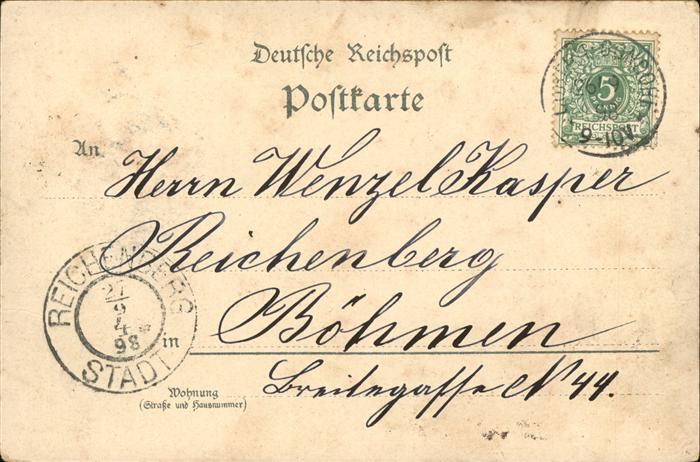 Deutsche Reichspost
Postkarte
5
REICHSPOST
9-10V.
An
Herrn Wenzel Kasper
Reichenberg
in Böhmen
Breitegasse No 44.
Wohnung
(Straße und Hausnummer)
REICHENBERG
27
9
4
98
STADT